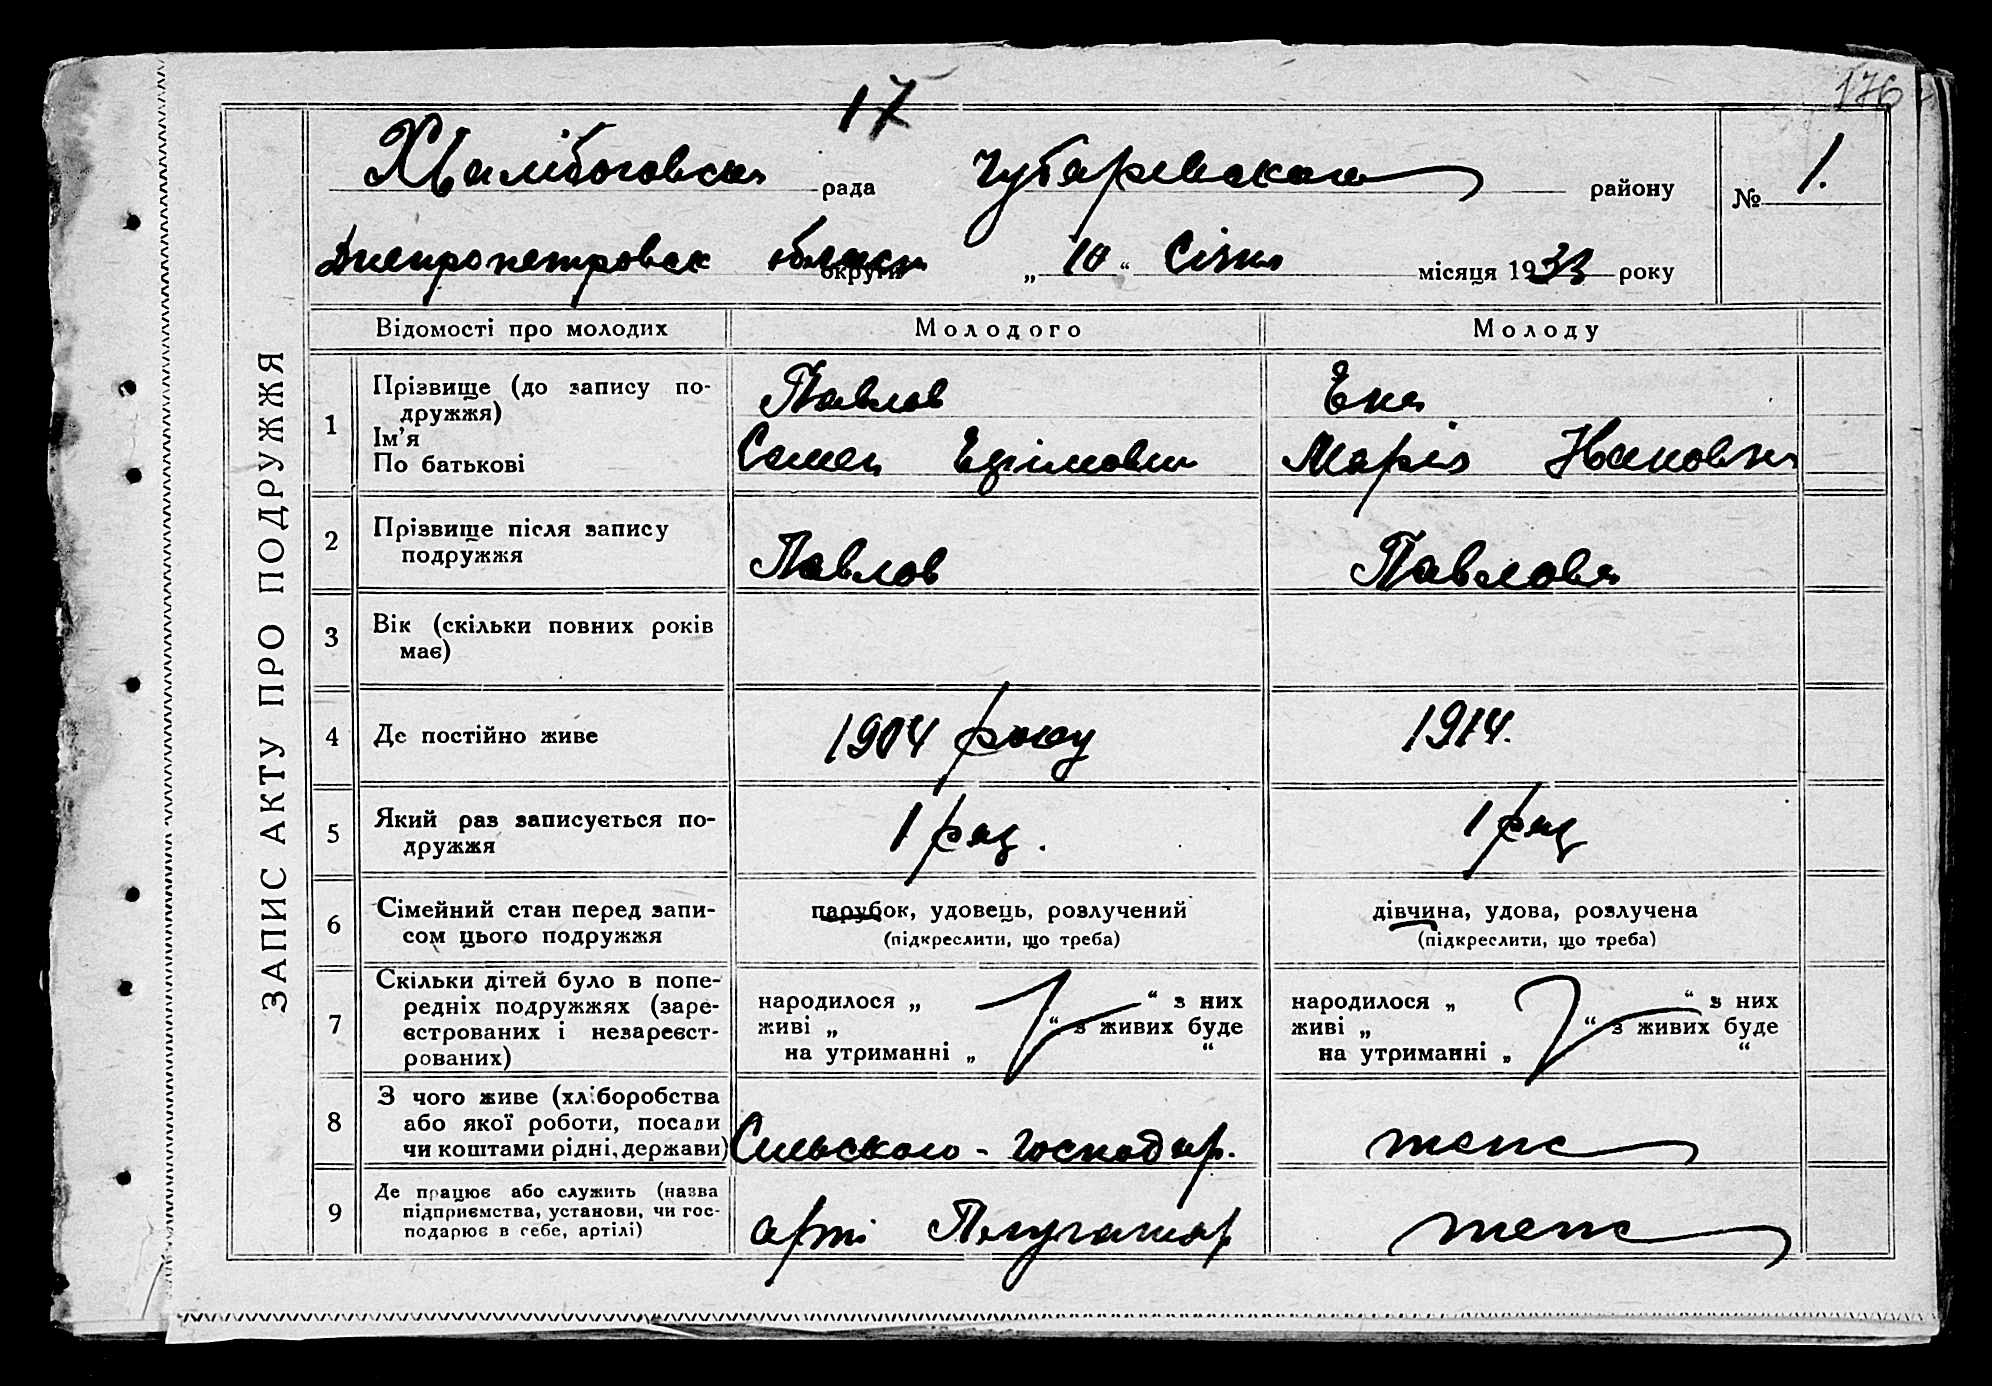 176
17
Хвалібоговська рада Чубаревского району № 1.
Днепропетровск области округи „10“ Січня місяця 1933 року
ЗАПИС АКТУ ПРО ПОДРУЖЖЯ
Відомості про молодих Молодого Молоду
1 Прізвище (до запису по-
дружжя) Павлов Ена
Ім'я
По батькові Семен Марія
2 Прізвище після запису
подружжя Павлов Павлова
3 Вік (скільки повних років
має)
4 Де постійно живе 1904 року 1914.
5 Який раз записується по-
дружжя 1 раз. 1 раз
6 Сімейний стан перед запи-
сом цього подружжя
парубок, удовець, розлучений
(підкреслити, що треба)
дівчина, удова, розлучена
(підкреслити, що треба)
7 Скільки дітей було в попе-
редніх подружжях (заре-
єстрованих і незареєст-
рованих)
народилося „ “ з них
живі „ “ з живих буде
на утриманні „ “
народилося „ “ з них
живі „ “ з живих буде
на утриманні „ “
8 З чого живе (хліборобства
або якої роботи, посади
чи коштами рідні, держави) Сильского-господар. тепс
9 Де працює або служить (назва
підприємства, установи, чи гос-
подарює в себе, артілі) арті Плугатар тепс